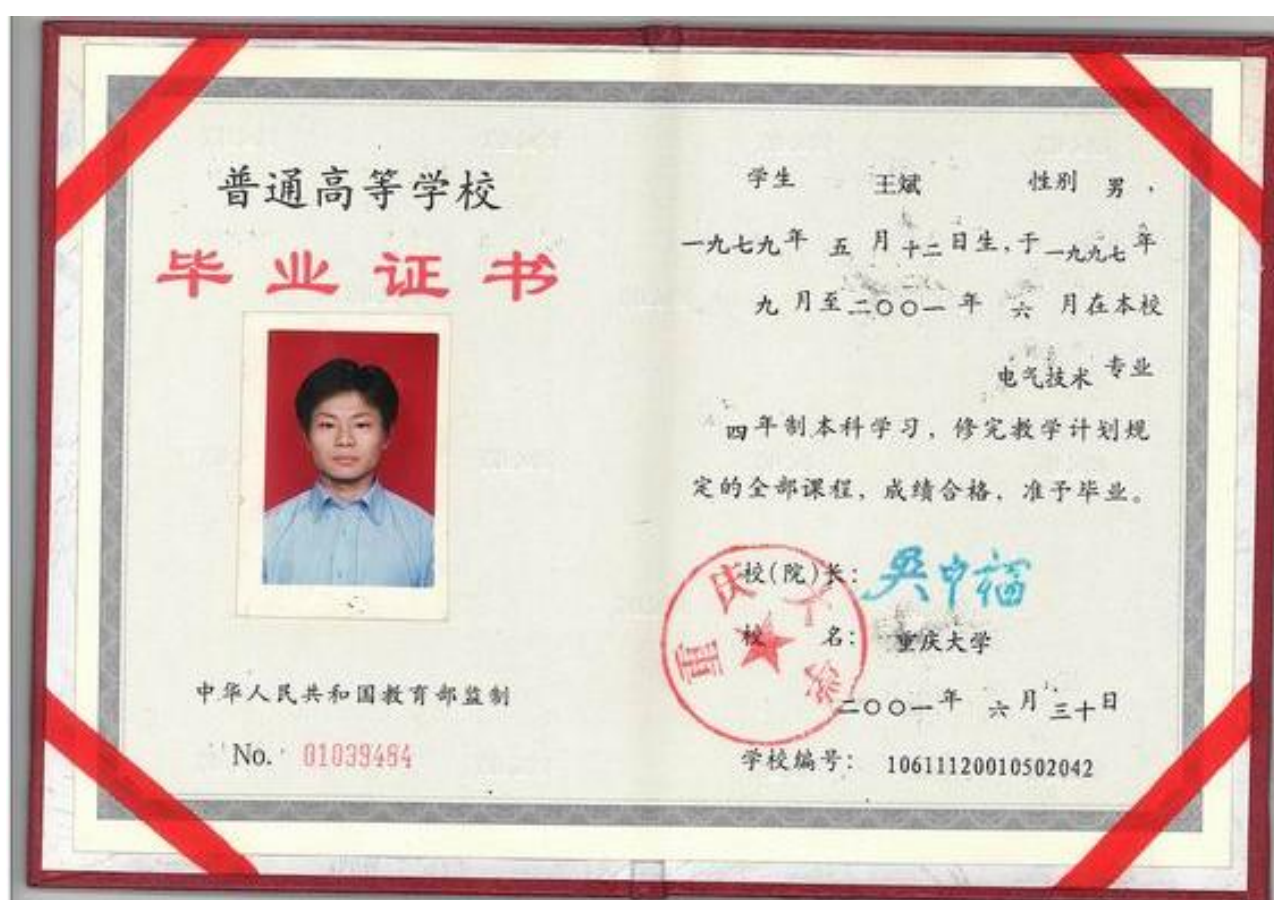 普通高等学校
毕业证书
中华人民共和国教育部监制
No. 01039484
学生 王斌 性别 男，
一九七九年 五 月 十二日生，于一九九七年
九 月至二〇〇一年 六 月在本校
电气技术 专业
四年制本科学习，修完教学计划规
定的全部课程，成绩合格，准予毕业。
校(院)长：吴中福
校 名：重庆大学
二〇〇一年 六 月三十日
学校编号： 10611120010502042
重庆大学